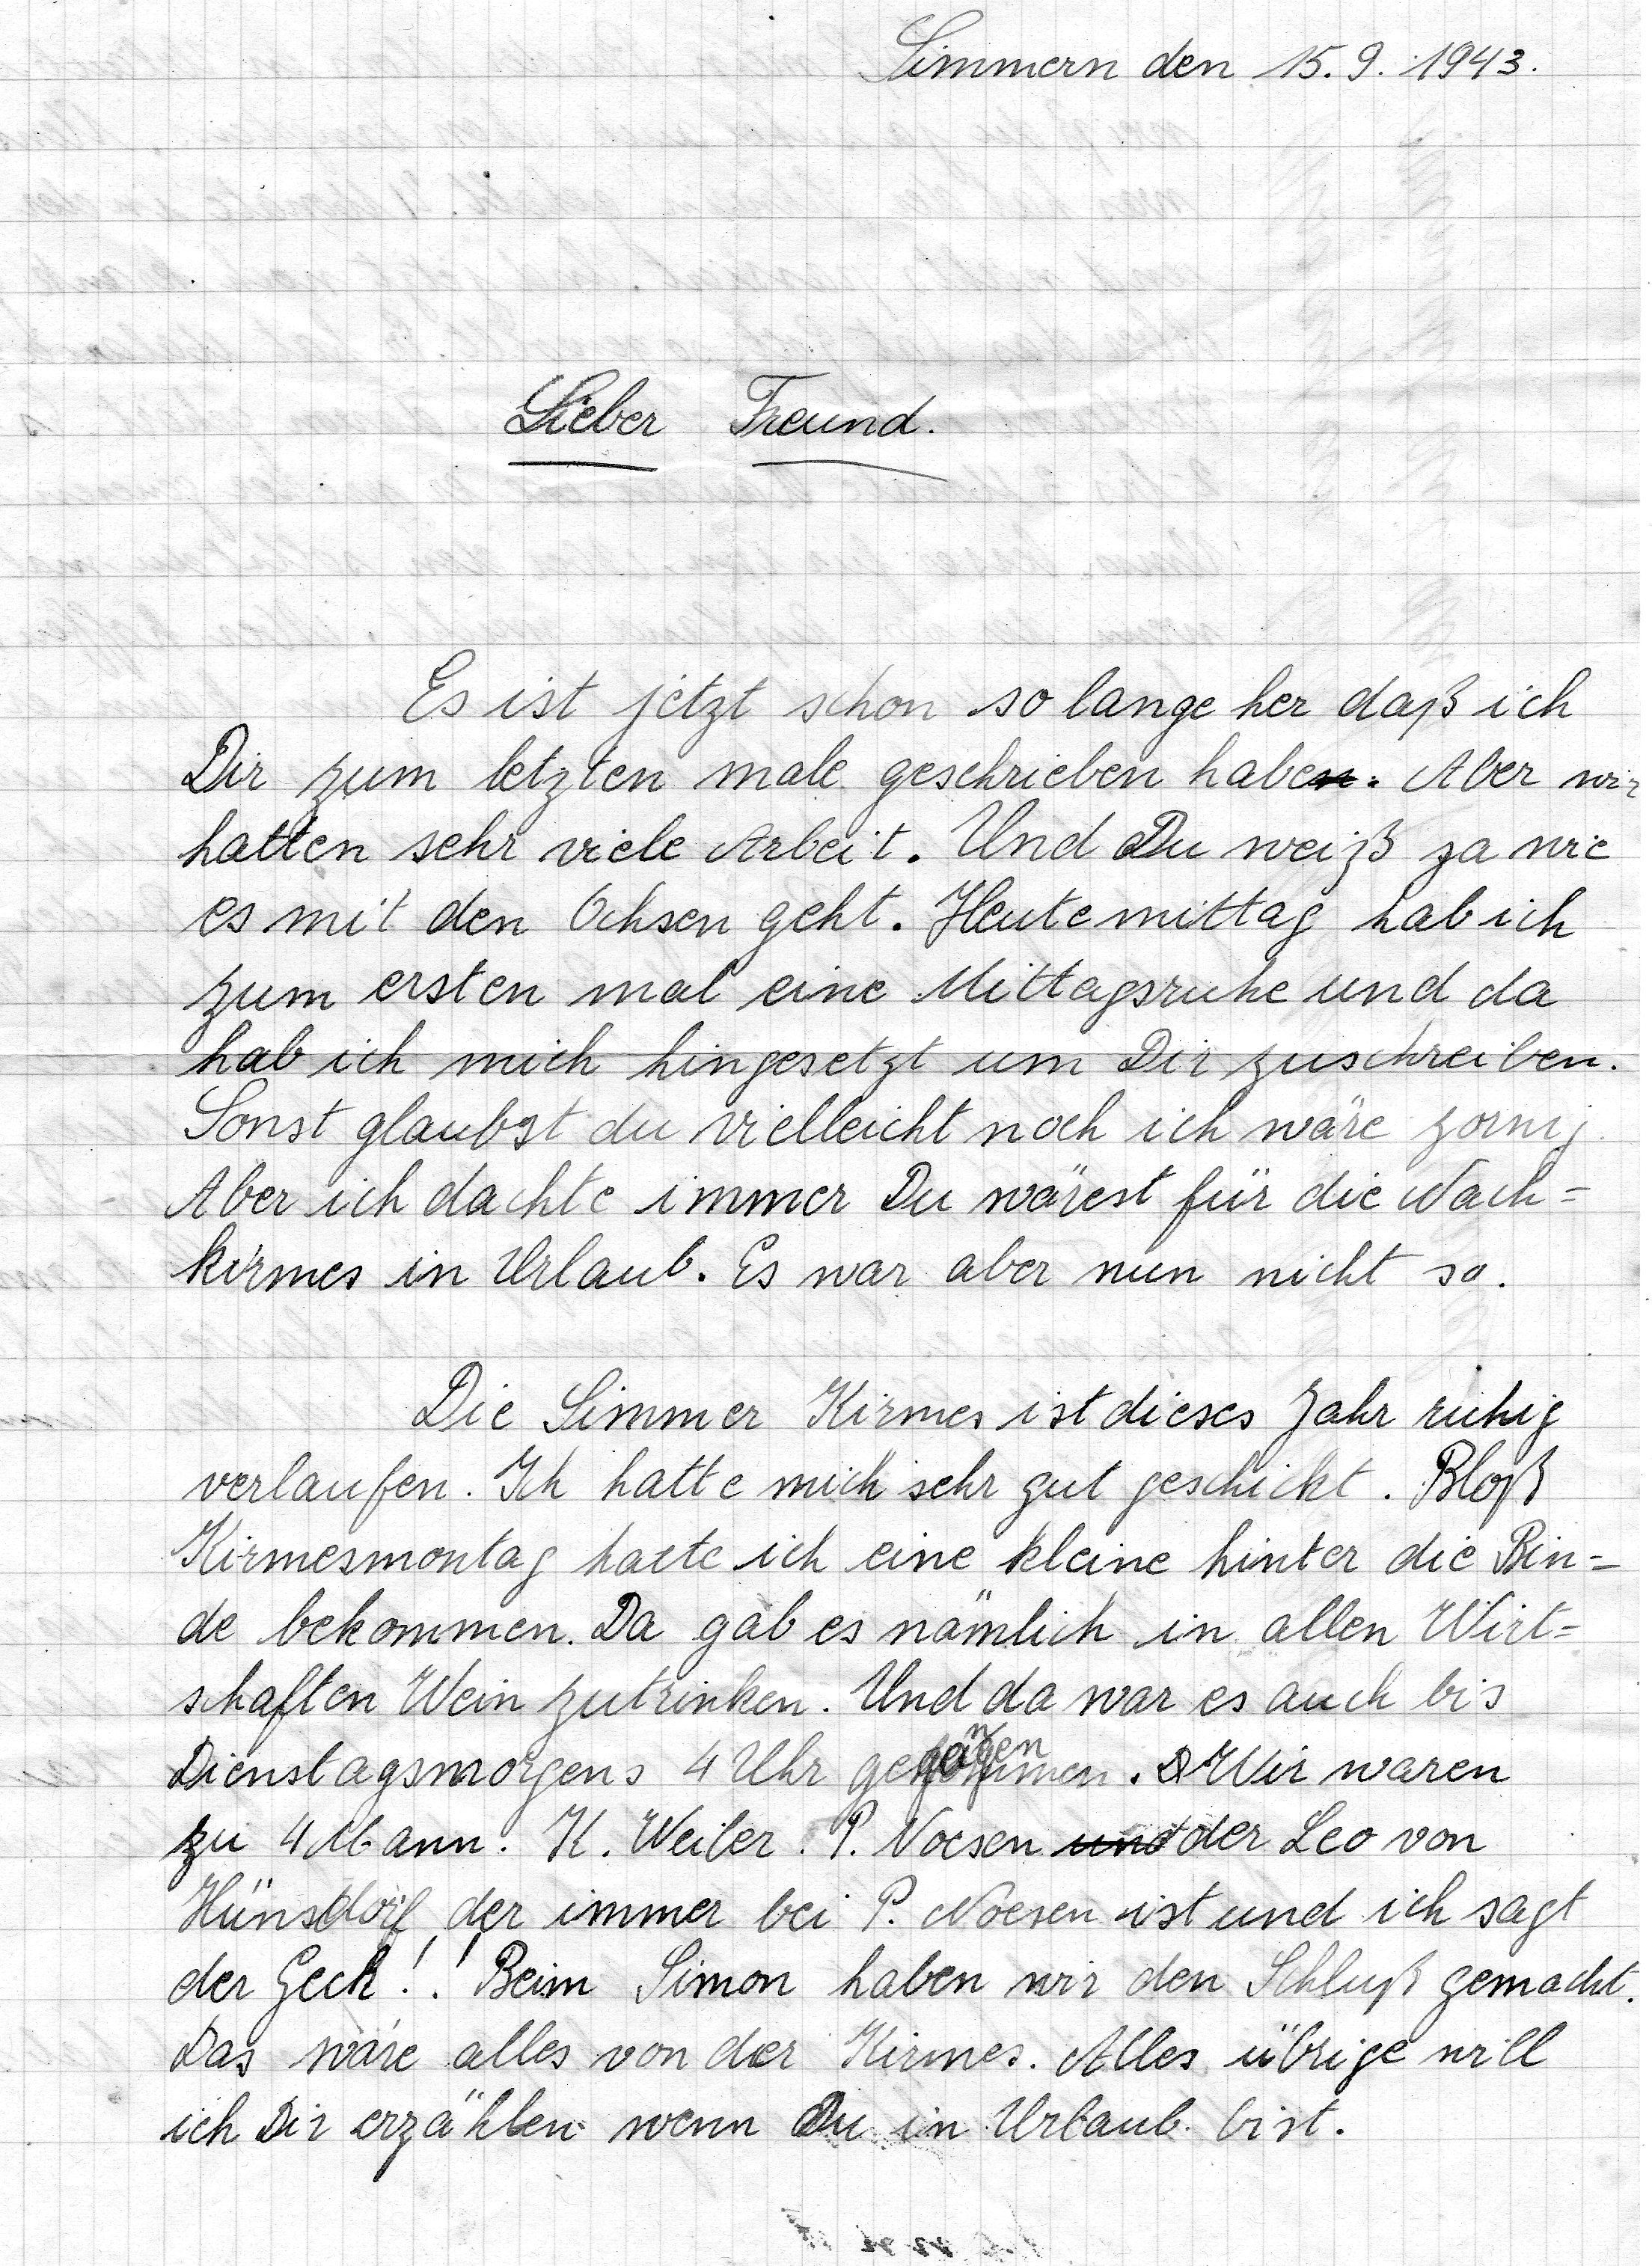 Simmern den 15.9.1943.
Lieber Freund.
Es ist jetzt schon so lange her daß ich
Dir zum letzten male geschrieben habe. Aber wir
hatten sehr viele Arbeit. Und Du weiß ja wie
es mit den Ochsen geht. Heute mittag hab ich
zum ersten mal eine Mittagsruhe und da
hab ich mich hingesetzt um Dir zuschreiben.
Sonst glaubst du vielleicht noch ich wäre zornig.
Aber ich dachte immer Du wärest für die Nach=
kirmes in Urlaub. Es war aber nun nicht so.
Die Simmer Kirmes ist dieses Jahr ruhig
verlaufen. Ich hatte mich sehr gut geschickt. Bloß
Kirmesmontag hatte ich eine kleine hinter die Bin=
de bekommen. Da gab es nämlich in allen Wirt=
schaften Wein zutrinken. Und da war es auch bis
Dienstagsmorgens 4 Uhr gegangen. Wir waren
zu 4 Mann. K. Weiler. P. Noesen und der Leo von
Hünsdorf der immer bei P. Noesen ist und ich sagt
der Geck!! Beim Simon haben wir den Schluß gemacht.
Das wäre alles von der Kirmes. Alles übrige will
ich Dir erzählen wenn Du in Urlaub bist.